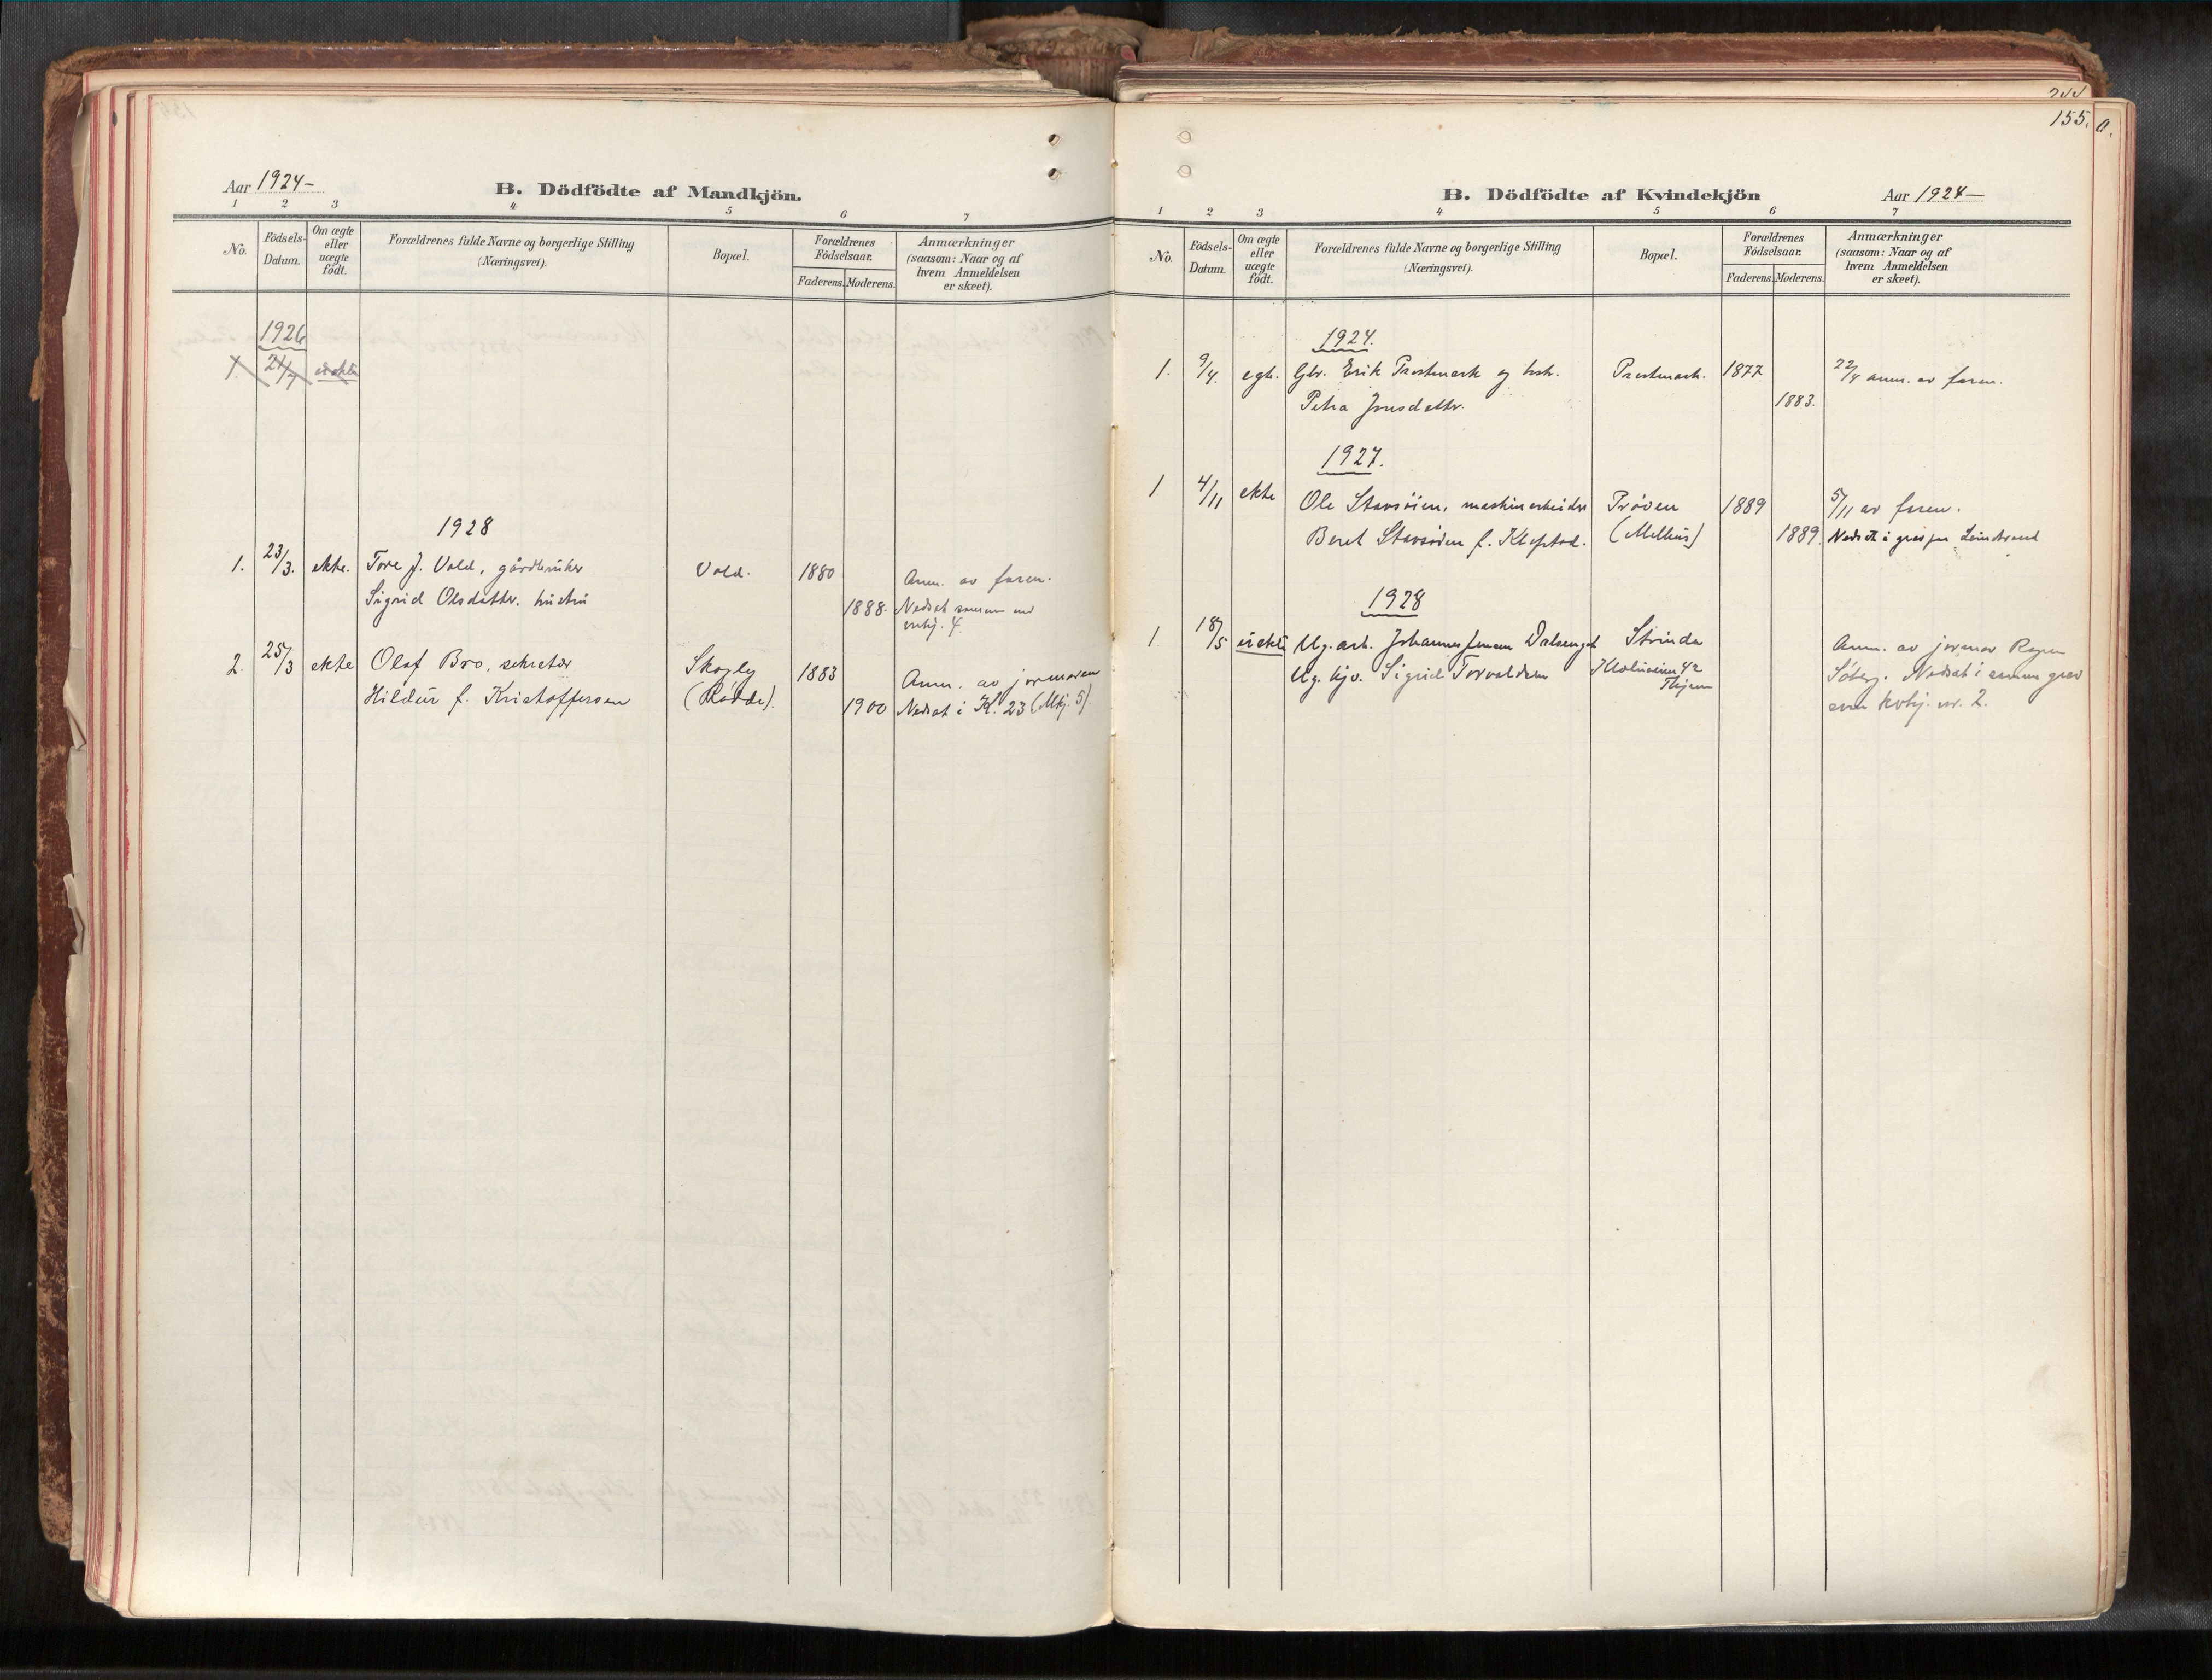 155.
Aar 1924-
B. Dödfödte af Mandkjön.
1 2 3 4 5 6 7
No.
Födsels-
Datum.
Om ægte
eller
uægte
födt.
Forældrenes fulde Navne og borgerlige Stilling
(Næringsvei).
Bopæl.
Forældrenes
Födselsaar.
Faderens. Moderens.
Anmærkninger
(saasom: Naar og af
hvem Anmeldelsen
er skeet).
1926
1. 21/7 uekte
1928
1. 23/3. ekte. Tore J. Vold, gårdbruker Vold. 1880 Anm. av faren.
Sigrid Olsdattr. hustru 1888. Nedsat sammen med
4.
2. 25/3 ekte Olaf Bro, sekretær Skogly 1883 Anm. av jormoren
Hildur f. Kristoffersen (Rødde). 1900 Nedsat i K. 23 (Mkj. 5).
B. Dödfödte af Kvindekjön
Aar 1924-
1 2 3 4 5 6 7
No.
Födsels-
Datum.
Om ægte
eller
uægte
födt.
Forældrenes fulde Navne og borgerlige Stilling
(Næringsvei).
Bopæl.
Forældrenes
Födselsaar.
Faderens. Moderens.
Anmærkninger
(saasom: Naar og af
hvem Anmeldelsen
er skeet).
1924.
1. 9/4. egte. Gbr. Erik Prestmark og hstr. Prestmark. 1877 22/4 anm. av faren.
Petra Jonsdattr. 1883.
1927.
1 4/11 ekte Ole Stavsöien, maskinarbeider Prøven 1889 5/11 av faren.
Beret Stavsöien f. Klefstad. (Melhus) 1889. Nedsatt i grav paa Leinstrand
1928
1 18/5 uekte Ug. arb. Johannes Jensen Dalsenget Strinda Anm. av jormor
Ug. tjv. Sigrid Torvaldsen 42 Söberg. Nedsat i samme grav
Thjem
som kvkj. nr. 2.